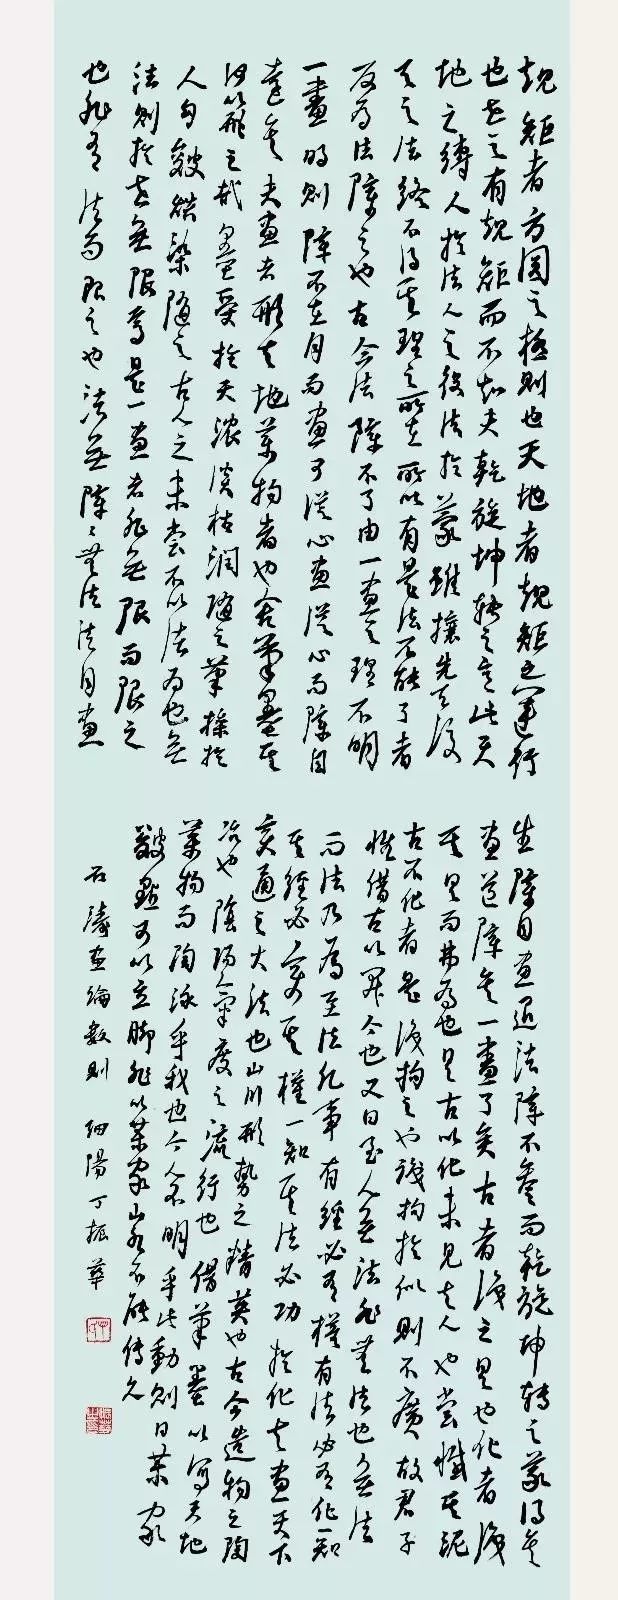 規矩者方圓之極則也天地者規矩之運行
也世之有規矩而不知夫乾旋坤轉之意此天
地之縛人於法人之役法於蒙雖攘先天後
天之法終不得其理之所在所以有是法不能了者
反為法障之也古今法障不了由一畫之理不明
一畫明則障不在目而畫可從心畫從心而障自
遠矣夫畫者形天地萬物者也舍筆墨其
何以形之哉墨受於天濃淡枯潤隨之筆操於
人勾皴烘染隨之古人之未嘗不以法為也無
法則於世無限焉是一畫者非無限而限之
也非有法而限之也法無障々無法法自畫
生障自畫退法障不參而乾旋坤轉之義得矣
畫道障矣一畫了矣古者識之具也化者識
其具而弗為也具古以化未見夫人也嘗憾其泥
古不化者是識拘之也識拘於似則不廣故君子
惟借古以開今也又曰至人無法非無法也無法
而法乃為至法凡事有經必有權有法必有化一知
其經必變其權一知其法必功於化夫畫天下
變通之大法也山川形勢之精英也古今造物之陶
冶也陰陽氣度之流行也借筆墨以寫天地
萬物而陶泳乎我也今人不明乎此動則曰某家
皴點可以立腳非似某家山水不能傳久
石濤畫論數則 細陽丁振華